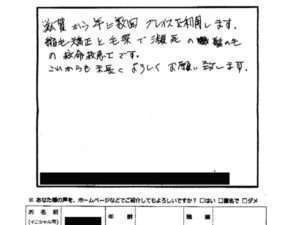 滋賀から年に数回 グレイスを利用します。
縮毛矯正と毛染で瀕死の髪の毛
の救命救急士です。
これからも末長くよろしくお願い致します。
※ あなた様の声を、ホームページなどでご紹介してもよろしいですか？ □はい □匿名で □ダメ
お名前
(イニシャル可)
年齢
職業